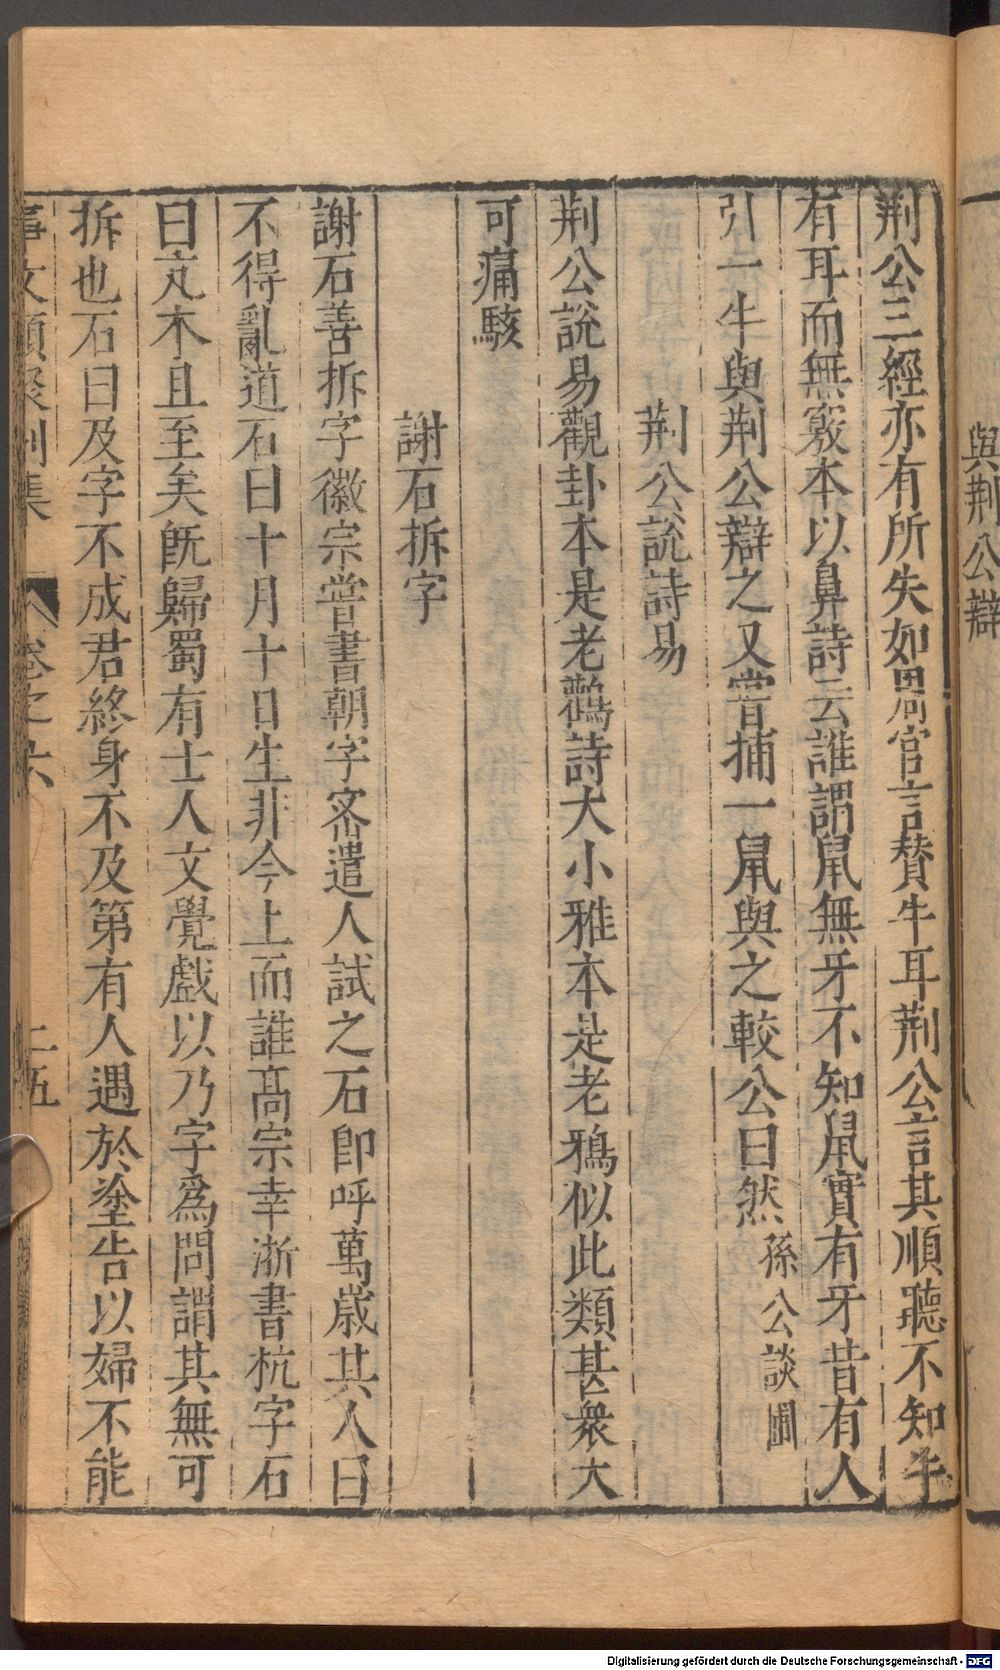 與荆公辯
荆公三經亦有所失如周官言賛牛耳荆公言其順聽不知牛
有耳而無竅本以鼻詩云誰謂鼠無牙不知鼠實有牙昔有人
引一牛與荆公辯之又嘗捕一鼠與之較公曰然孫公談圃
荆公説詩易
荆公說易觀卦本是老鸛詩大小雅本是老鴉似此類甚衆大
可痛駭
謝石拆字
謝石善拆字徽宗嘗書朝字宻遣人試之石卽呼萬歲其人曰
不得亂道石曰十月十日生非今上而誰髙宗幸浙書杭字石
曰兀木且至矣旣歸蜀有士人文覺戲以乃字爲問謂其無可
拆也石曰及字不成君終身不及第有人遇於塗告以婦不能
事文類聚別集 卷之六 二五
Digitalisierung gefördert durch die Deutsche Forschungsgemeinschaft - DFG